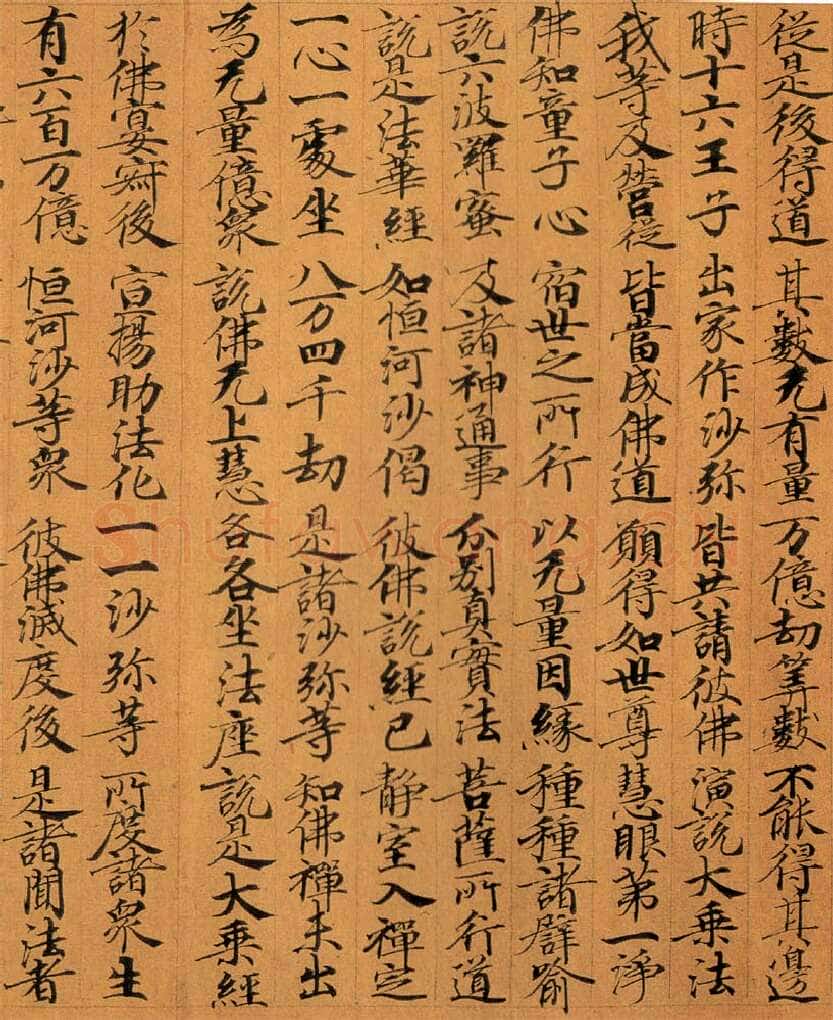 從是後得道 其數无有量 万億劫筭數 不能得其邊
時十六王子 出家作沙弥 皆共請彼佛 演說大乗法
我等及營從 皆當成佛道 願得如世尊 慧眼第一淨
佛知童子心 宿世之所行 以无量因緣 種種諸譬喻
說六波羅蜜 及諸神通事 分別真實法 菩薩所行道
說是法華經 如恒河沙偈 彼佛說經已 静室入禪定
一心一處坐 八万四千劫 是諸沙弥等 知佛禪未出
為无量億衆 說佛无上慧 各各坐法座 說是大乗經
於佛宴寂後 宣揚助法化 一一沙弥等 所度諸衆生
有六百万億 恒河沙等衆 彼佛滅度後 是諸聞法者